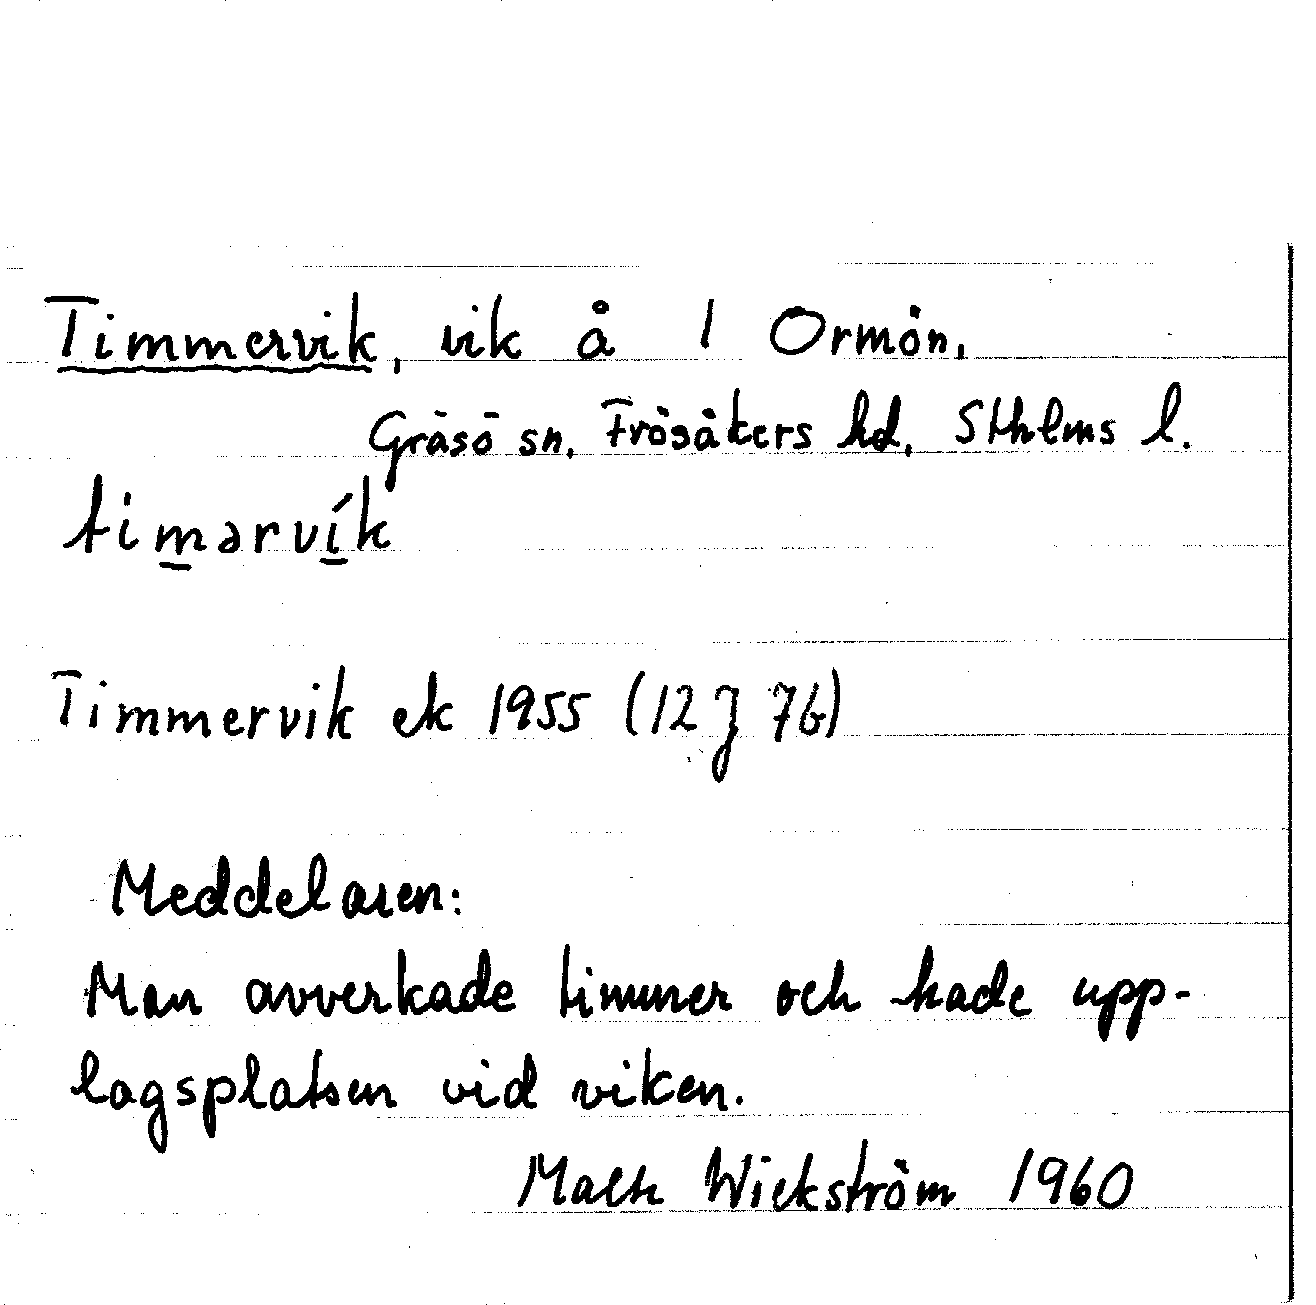 Timmervik, vik å 1 Ormön,
Gräsö sn, Frösåkers hd, Sthlms l.
timərvík
Timmervik ek 1955 (12 J 7b)
Meddelaren:
Man avverkade timmer och hade upp-
lagsplatsen vid viken.
Wickström 1960